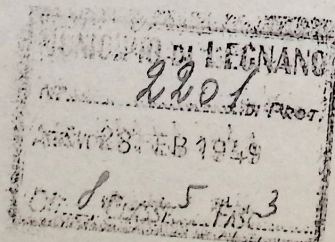 MUNICIPIO DI LEGNANO
N. 2201 DI PROT.
28 FEB 1949
Cat. 8 Classe 5 Fasc. 3